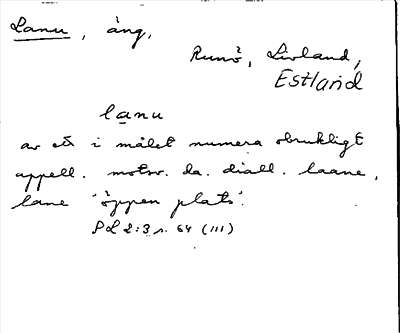 Lanu, äng,
Runö, Livland,
Estland
lanu
av ett i målet numera obrukligt
appell. motsv. da. diall. laane,
lane 'öppen plats'.
PL 2:3 s. 64 (III)